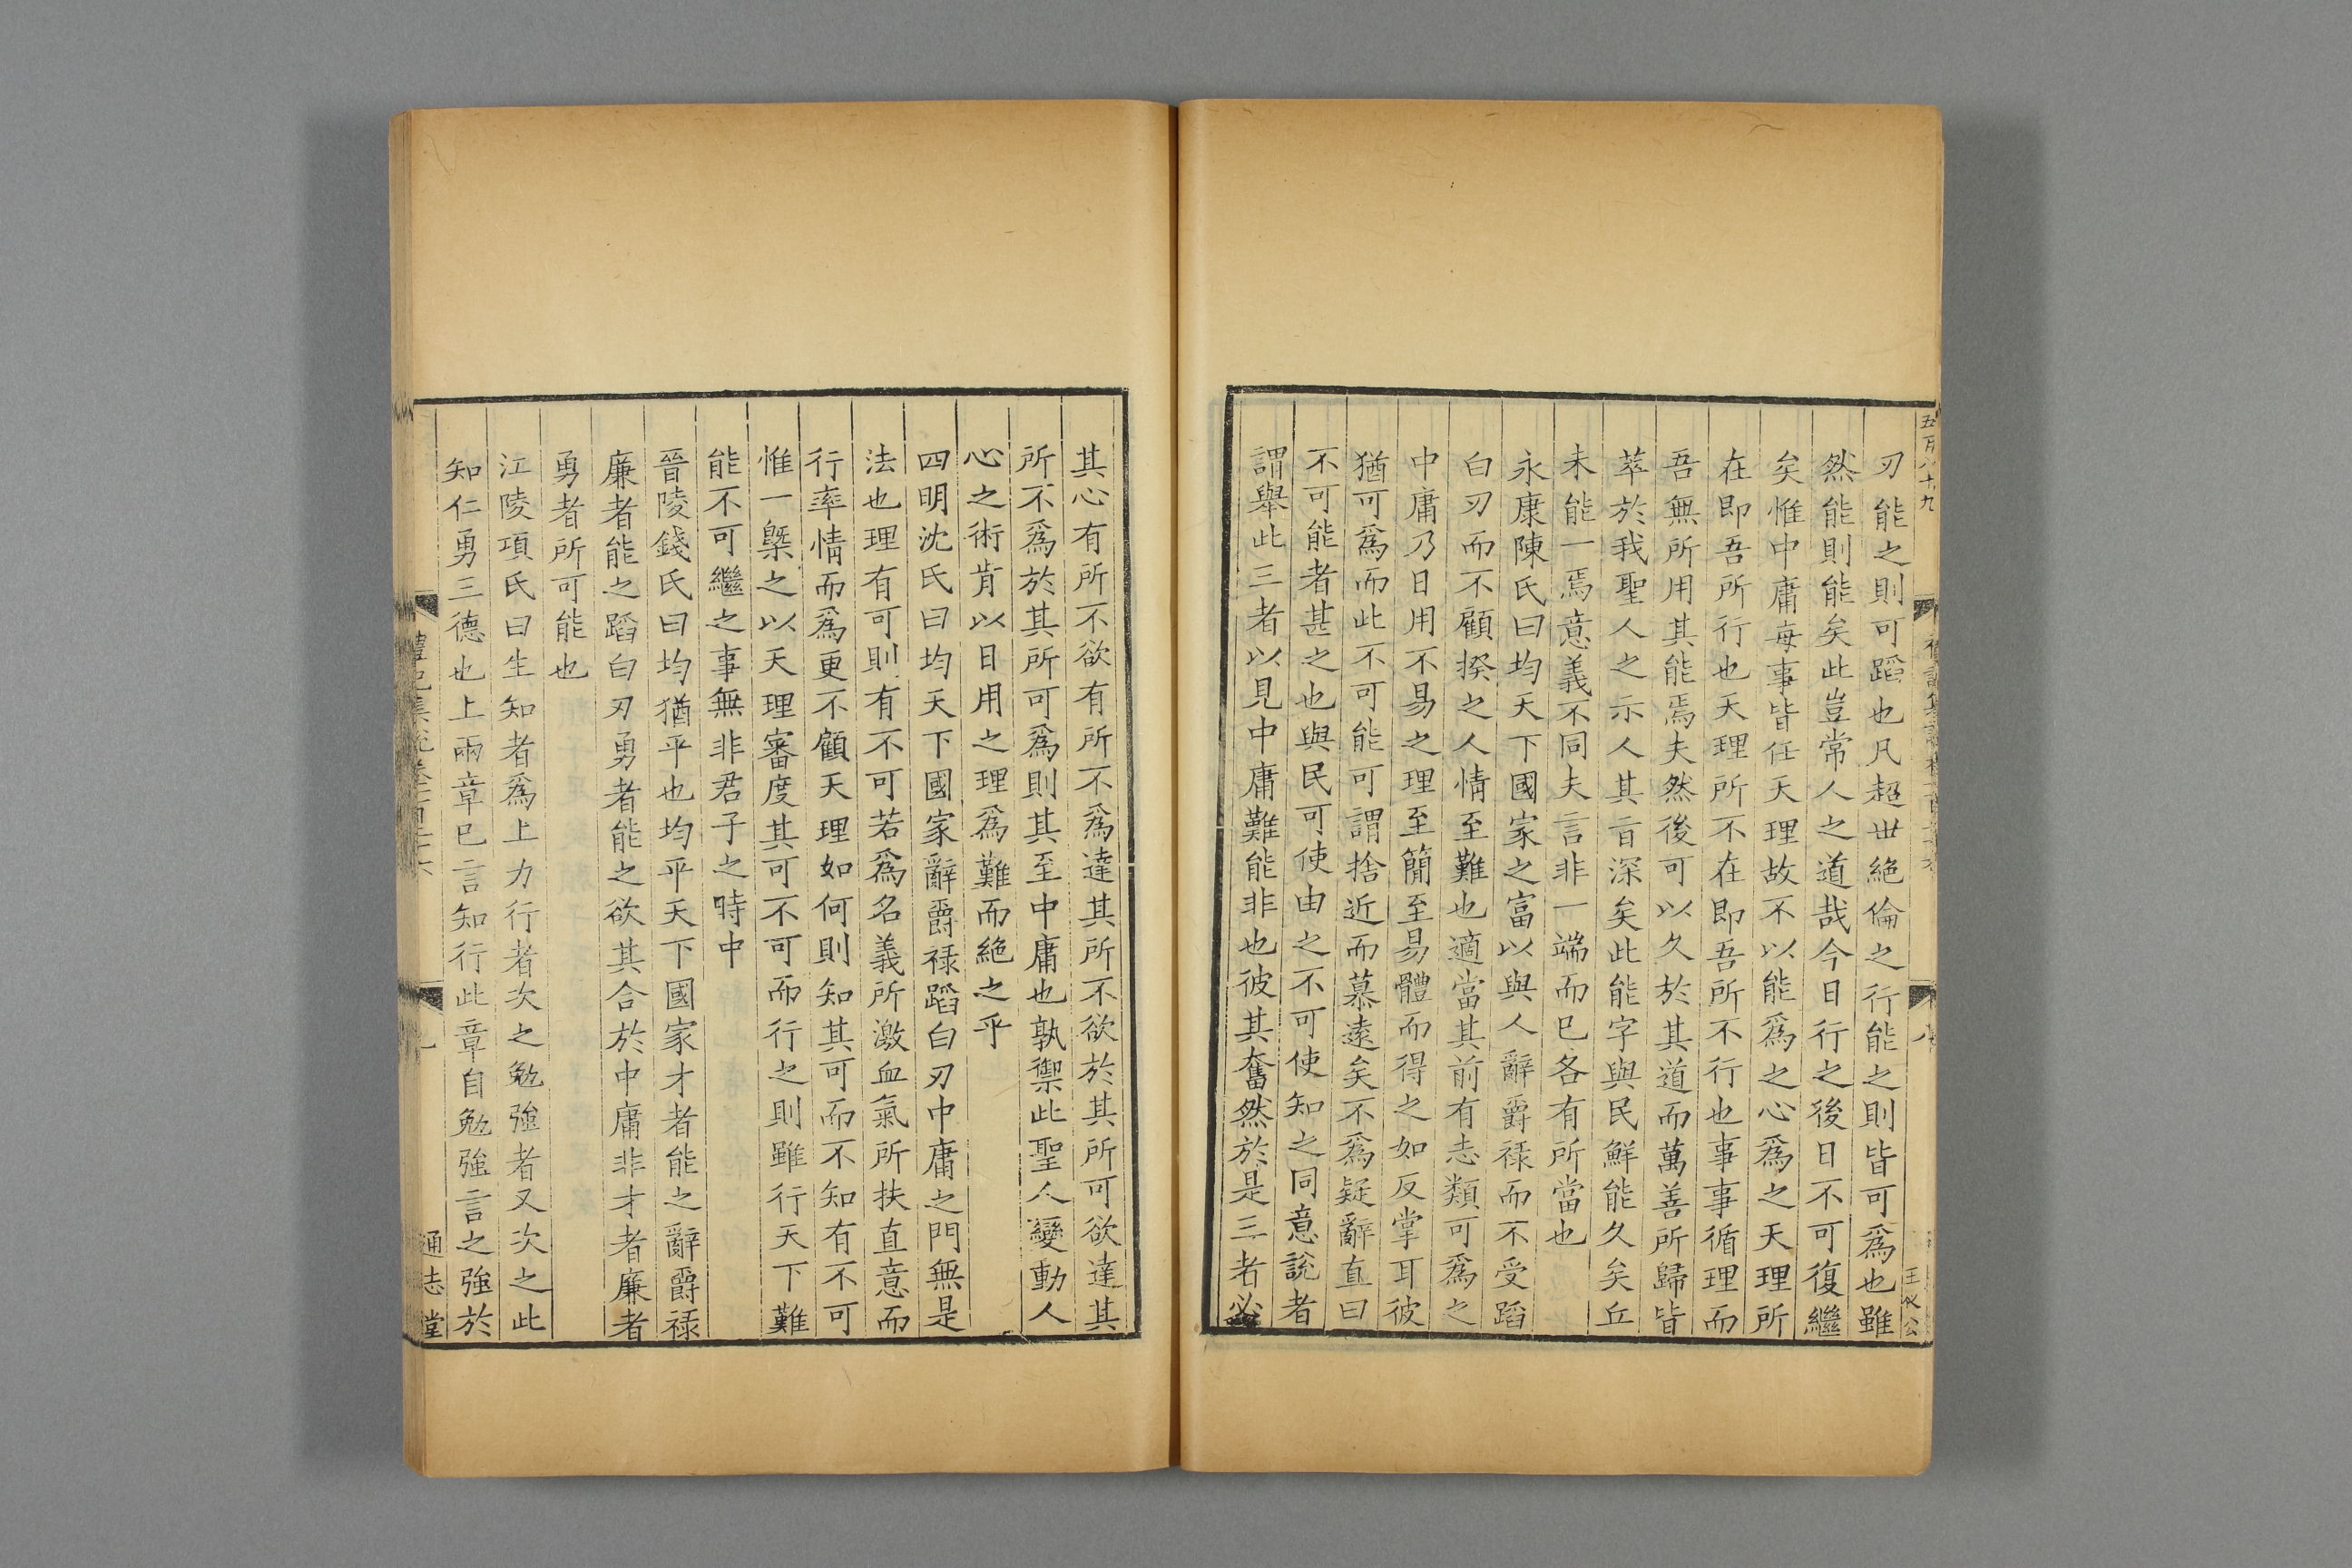 刃能之則可蹈也凡超世絕倫之行能之則皆可爲也雖
然能則能矣此豈常人之道哉今日行之後日不可復繼
矣惟中庸每事皆任天理故不以能爲之心爲之天理所
在即吾所行也天理所不在即吾所不行也事事循理而
吾無所用其能焉夫然後可以久於其道而萬善所歸皆
萃於我聖人之示人其旨深矣此能字與民鮮能久矣丘
未能一焉意義不同夫言非一端而已各有所當也
永康陳氏曰均天下國家之富以與人辭爵祿而不受蹈
白刃而不顧揆之人情至難也適當其前有志類可爲之
中庸乃日用不易之理至簡至易體而得之如反掌耳彼
猶可爲而此不可能可謂捨近而慕遠矣不爲疑辭直曰
不可能者甚之也與民可使由之不可使知之同意說者
謂舉此三者以見中庸難能非也彼其奮然於是三者必
其心有所不欲有所不爲達其所不欲於其所可欲達其
所不爲於其所可爲則其至中庸也孰禦此聖人變動人
心之術肯以日用之理爲難而絶之乎
四明沈氏曰均天下國家辭爵祿蹈白刃中庸之門無是
法也理有可則有不可若爲名義所激血氣所扶直意而
行率情而爲更不顧天理如何則知其可而不知有不可
惟一槩之以天理審度其可不可而行之則雖行天下難
能不可繼之事無非君子之時中
晉陵錢氏曰均猶平也均平天下國家才者能之辭爵祿
廉者能之蹈白刃勇者能之欲其合於中庸非才者廉者
勇者所可能也
江陵項氏曰生知者爲上力行者次之勉強者又次之此
知仁勇三德也上兩章已言知行此章自勉強言之強於
通志堂